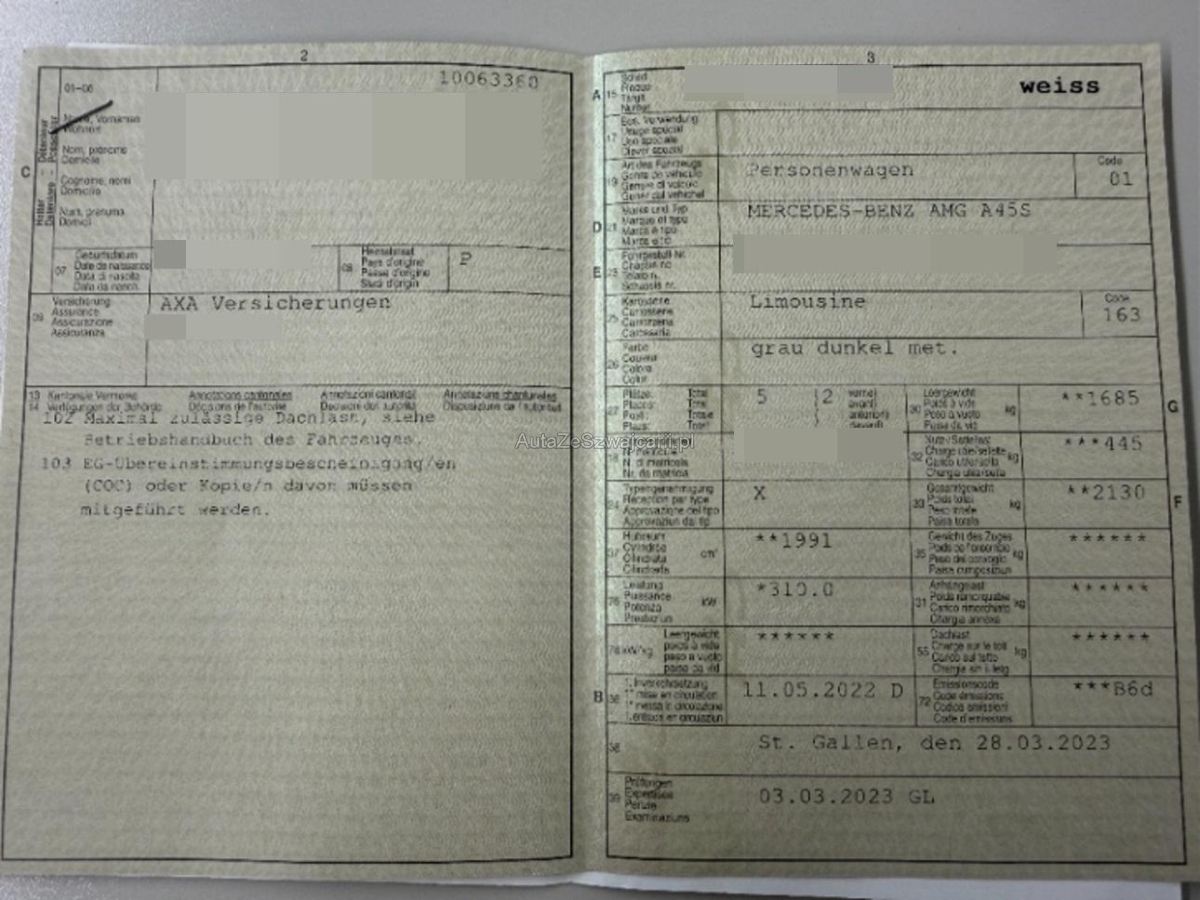 2
10063360
01-06
C
Halter
Détenteur
Name, Vornamen
Wohnort
Nom, prénoms
Domicile
Cognome, nomi
Domicilio
Num, prenums
Domicil
07
Geburtsdatum
Date de naissance
Data di nascita
Data da nasch.
08
Heimatstaat
Pays d'origine
Paese d'origine
Stadi d'origin
P
09
Versicherung
Assurance
Assicurazione
Assicuranza
AXA Versicherungen
13 Kantonale Vermerke Annotations cantonales Annotazioni cantonali Annotaziuns chantunalas
14 Verfügungen der Behörde Décisions de l'autorité Decisioni dell'autorità Disposiziuns da l'autoritad
102 Maximal zulässige Dachlast, siehe
Betriebshandbuch des Fahrzeuges.
103 EG-Übereinstimmungsbescheinigung/en
(COC) oder Kopie/n davon müssen
mitgeführt werden.
AutaZeSzwajcarii.pl
3
A 15
Schild
Plaque
Targa
weiss
17
Bes. Verwendung
Usage spécial
Uso speciale
Diever spezial
19
Art des Fahrzeugs
Genre de véhicule
Genere di veicolo
Gener dal vehichel
Personenwagen
Code
01
D 21
Marke und Typ
Marque et type
Marca e tipo
Marca e tip
MERCEDES-BENZ AMG A45S
E 23
Fahrgestell Nr.
Châssis no
Telaio n.
Schassis nr.
25
Karosserie
Carrosserie
Carrozzeria
Carossaria
Limousine
Code
163
26
Farbe
Couleur
Colore
Colur
grau dunkel met.
27
Plätze: Total
Places: Total
Posti: Totale
Plazs: Total
5 (2
vorne)
avant)
anteriori)
davant)
30
Leergewicht
Poids à vide
Peso a vuoto
Paisa da vid
kg
**1685
G
18
N. di matricola
Nr. da matricla
32
Nutz-/Sattellast
Charge utile/sellette
Carico utile/sella
Chargia utila/sutga
kg
***445
24
Typengenehmigung
Réception par type
Approvazione del tipo
Approvaziun dal tip
X
33
Gesamtgewicht
Poids total
Peso totale
Paisa totala
kg
**2130
F
37
Hubraum
Cylindrée
Cilindrata
Cilindrada
cm³
**1991
35
Gewicht des Zuges
Poids de l'ensemble
Peso del convoglio
Paisa cumposiziun
kg
******
76
Leistung
Puissance
Potenza
Prestaziun
kW
*310.0
31
Anhängelast
Poids remorquable
Carico rimorchiato
Chargia annexa
kg
******
78 kW/kg
Leergewicht
poids à vide
peso a vuoto
paisa da vid
******
55
Dachlast
Charge sur le toit
Carico sul tetto
Chargia sin il tetg
kg
******
B 36
1. Inverkehrsetzung
1re mise en circulation
1a messa in circolazione
1. entrada en circulaziun
11.05.2022 D
72
Emissionscode
Code émissions
Codice emissioni
Code d'emissiuns
***B6d
38
St. Gallen, den 28.03.2023
39
Prüfungen
Expertises
Perizie
Examinaziuns
03.03.2023 GL